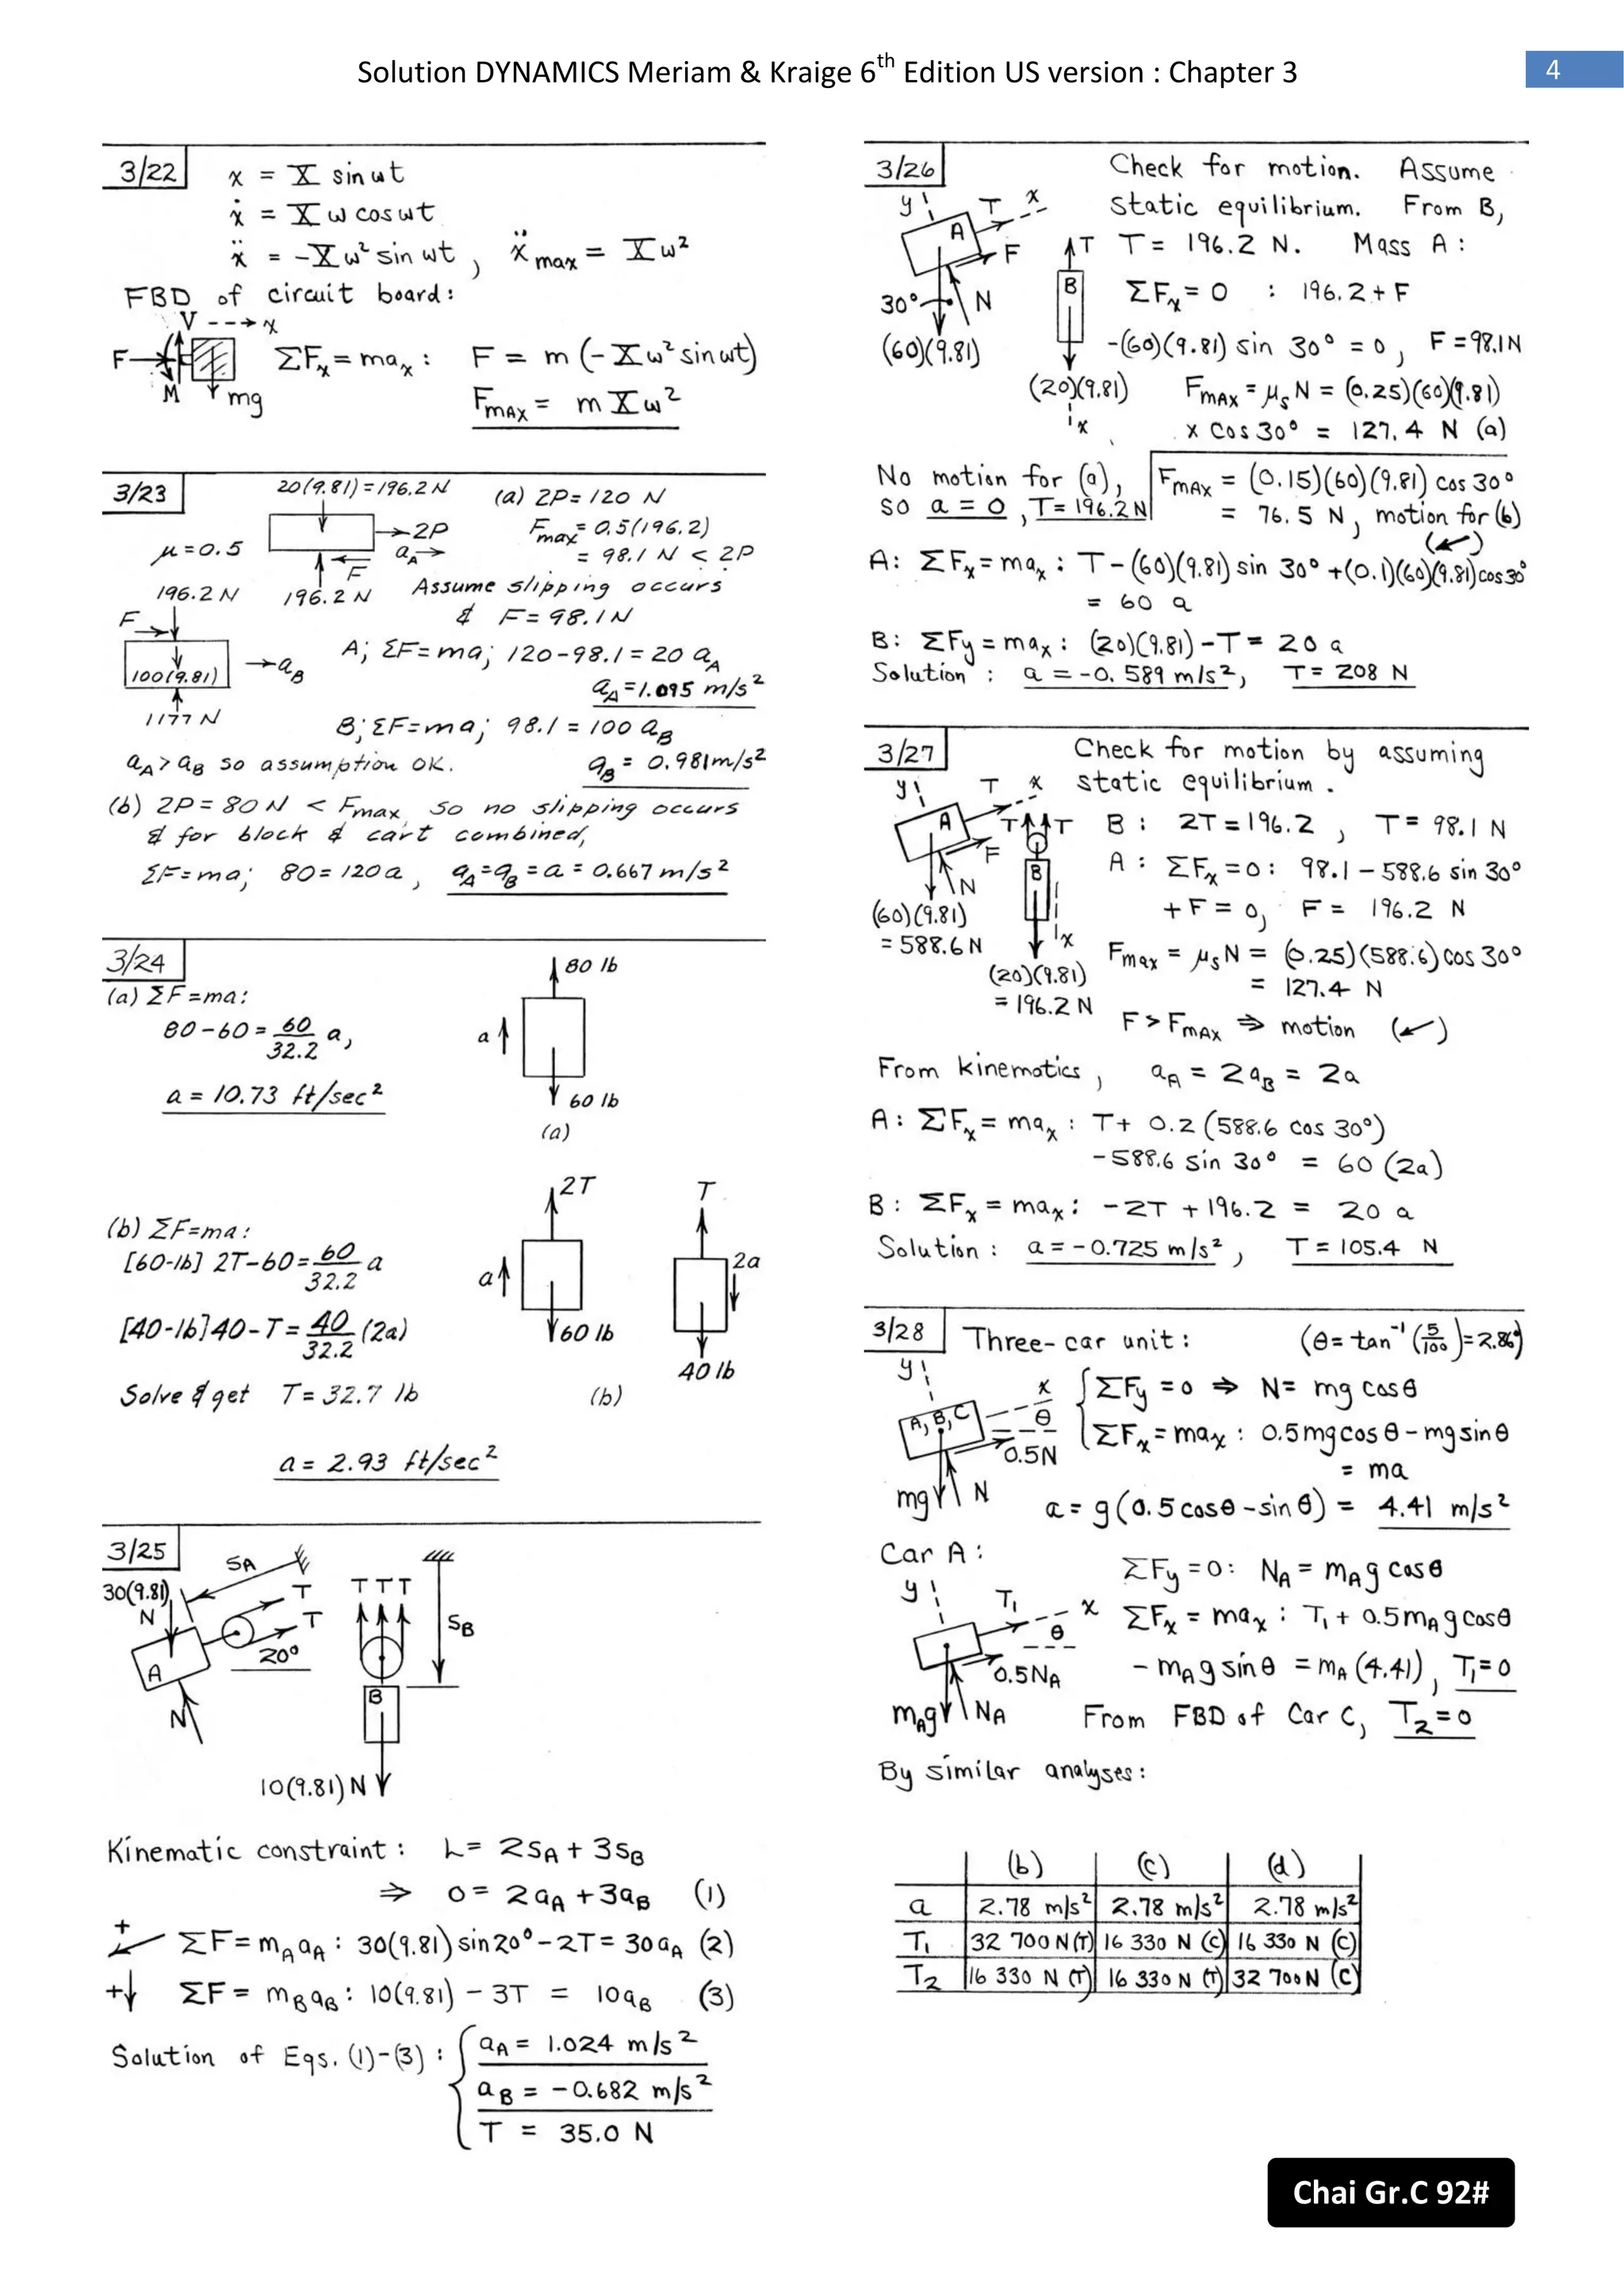 Solution DYNAMICS Meriam & Kraige 6th Edition US version : Chapter 3
4
3/22
x = X sin ωt
ẋ = X ω cos ωt
ẍ = -Xω² sin ωt , ẍ max = Xω²
FBD of circuit board:
V ---→ x
F
M
mg
ΣFx = max : F = m (-Xω² sin ωt)
FMAX = m X ω²
3/23
20(9.81) = 196.2 N
2P
aA →
F
μ = 0.5
196.2 N
196.2 N
F
100(9.81)
→ aB
1177 N
(a) 2P = 120 N
Fmax = 0.5(196.2)
= 98.1 N < 2P
Assume slipping occurs
& F = 98.1 N
A; ΣF = ma; 120-98.1 = 20 aA
aA = 1.095 m/s²
B; ΣF = ma; 98.1 = 100 aB
aA > aB so assumption OK.
aB = 0.981 m/s²
(b) 2P = 80 N < Fmax, so no slipping occurs
& for block & cart combined,
ΣF = ma; 80 = 120a , aA = aB = a = 0.667 m/s²
3/24
(a) ΣF = ma:
80 - 60 = 60/32.2 a,
a = 10.73 ft/sec²
80 lb
a
60 lb
(a)
(b) ΣF = ma:
[60-lb] 2T - 60 = 60/32.2 a
[40-lb] 40 - T = 40/32.2 (2a)
Solve & get T = 32.7 lb
a = 2.93 ft/sec²
2T
a
60 lb
T
2a
40 lb
(b)
3/25
30(9.81)
N
SA
T
T
20°
A
N
T T T
SB
B
10(9.81) N
Kinematic constraint : L = 2SA + 3SB
⇒ 0 = 2aA + 3aB (1)
+ ↙ ΣF = mA aA : 30(9.81) sin 20° - 2T = 30aA (2)
+↓ ΣF = mB aB : 10(9.81) - 3T = 10aB (3)
Solution of Eqs. (1)-(3) : { aA = 1.024 m/s²
aB = -0.682 m/s²
T = 35.0 N
3/26
Check for motion. Assume
static equilibrium. From B,
T = 196.2 N. Mass A :
y
T
x
A
F
30°
N
(60)(9.81)
T
B
(20)(9.81)
x
ΣFx = 0 : 196.2 + F
-(60)(9.81) sin 30° = 0, F = 98.1 N
FMAX = μs N = (0.25)(60)(9.81)
x cos 30° = 127.4 N (a)
No motion for (a),
so a = 0 , T = 196.2 N
FMAX = (0.15)(60)(9.81) cos 30°
= 76.5 N, motion for (b)
(↙)
A: ΣFx = max : T - (60)(9.81) sin 30° + (0.1)(60)(9.81) cos 30°
= 60 a
B: ΣFy = max : (20)(9.81) - T = 20 a
Solution : a = -0.589 m/s², T = 208 N
3/27
Check for motion by assuming
static equilibrium .
y
T
x
A
F
N
(60)(9.81)
= 588.6 N
T
T
B
x
(20)(9.81)
= 196.2 N
B : 2T = 196.2 , T = 98.1 N
A : ΣFx = 0 : 98.1 - 588.6 sin 30°
+ F = 0, F = 196.2 N
Fmax = μs N = (0.25)(588.6) cos 30°
= 127.4 N
F > FMAX ⇒ motion (↙)
From kinematics , aA = 2aB = 2a
A : ΣFx = max : T + 0.2 (588.6 cos 30°)
-588.6 sin 30° = 60 (2a)
B : ΣFx = max : -2T + 196.2 = 20 a
Solution : a = -0.725 m/s² , T = 105.4 N
3/28
Three-car unit : (θ = tan⁻¹ (5/100) = 2.86°)
y
x
A, B, C
θ
0.5N
mg
N
{ ΣFy = 0 ⇒ N = mg cos θ
ΣFx = max : 0.5mg cos θ - mg sin θ
= ma
a = g (0.5 cos θ - sin θ) = 4.41 m/s²
Car A :
y
T1
x
θ
0.5NA
mAg
NA
ΣFy = 0 : NA = mA g cos θ
ΣFx = max : T1 + 0.5mA g cos θ
- mA g sin θ = mA (4.41) , T1 = 0
From FBD of Car C, T2 = 0
By similar analyses :
(b) (c) (d)
a 2.78 m/s² 2.78 m/s² 2.78 m/s²
T1 32 700 N (T) 16 330 N (C) 16 330 N (C)
T2 16 330 N (T) 16 330 N (T) 32 700 N (C)
Chai Gr.C 92#